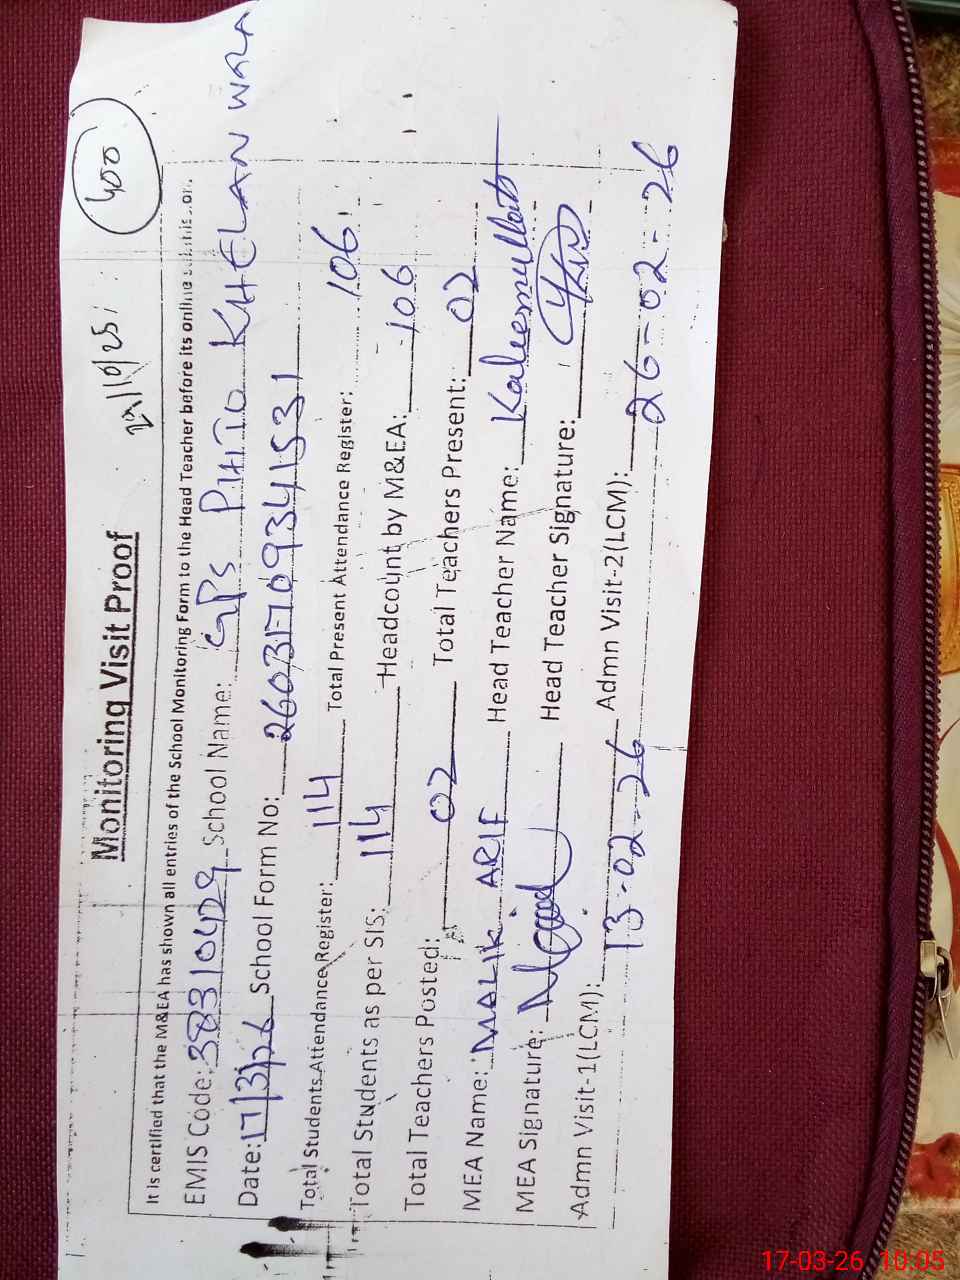 400
Monitoring Visit Proof 29/10/25
It is certified that the M&EA has shown all entries of the School Monitoring Form to the Head Teacher before its online
EMIS Code: 38310429 School Name: GPS PHITO KHELAN WALA
Date: 17/3/26 School Form No: 26031709341531
Total Students Attendance Register: 114 Total Present Attendance Register: 106
Total Students as per SIS: 114 Headcount by M&EA: 106
Total Teachers Posted: 02 Total Teachers Present: 02
MEA Name: MALIK ARIF Head Teacher Name: Kaleemullah
MEA Signature: Head Teacher Signature:
Admn Visit-1(LCM): 13-02-26 Admn Visit-2(LCM): 26-02-26
17-03-26 10:05